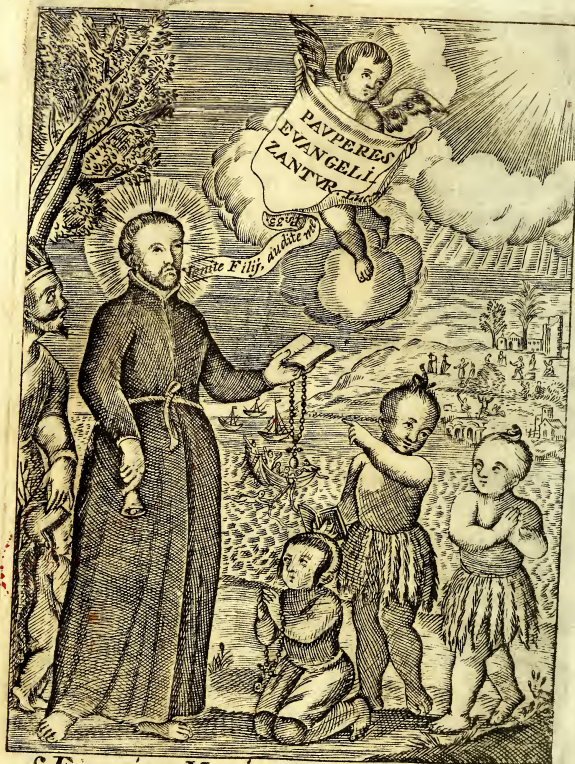 PAVPERES
EVANGELI
ZANTVR
Venite Filij, audite me